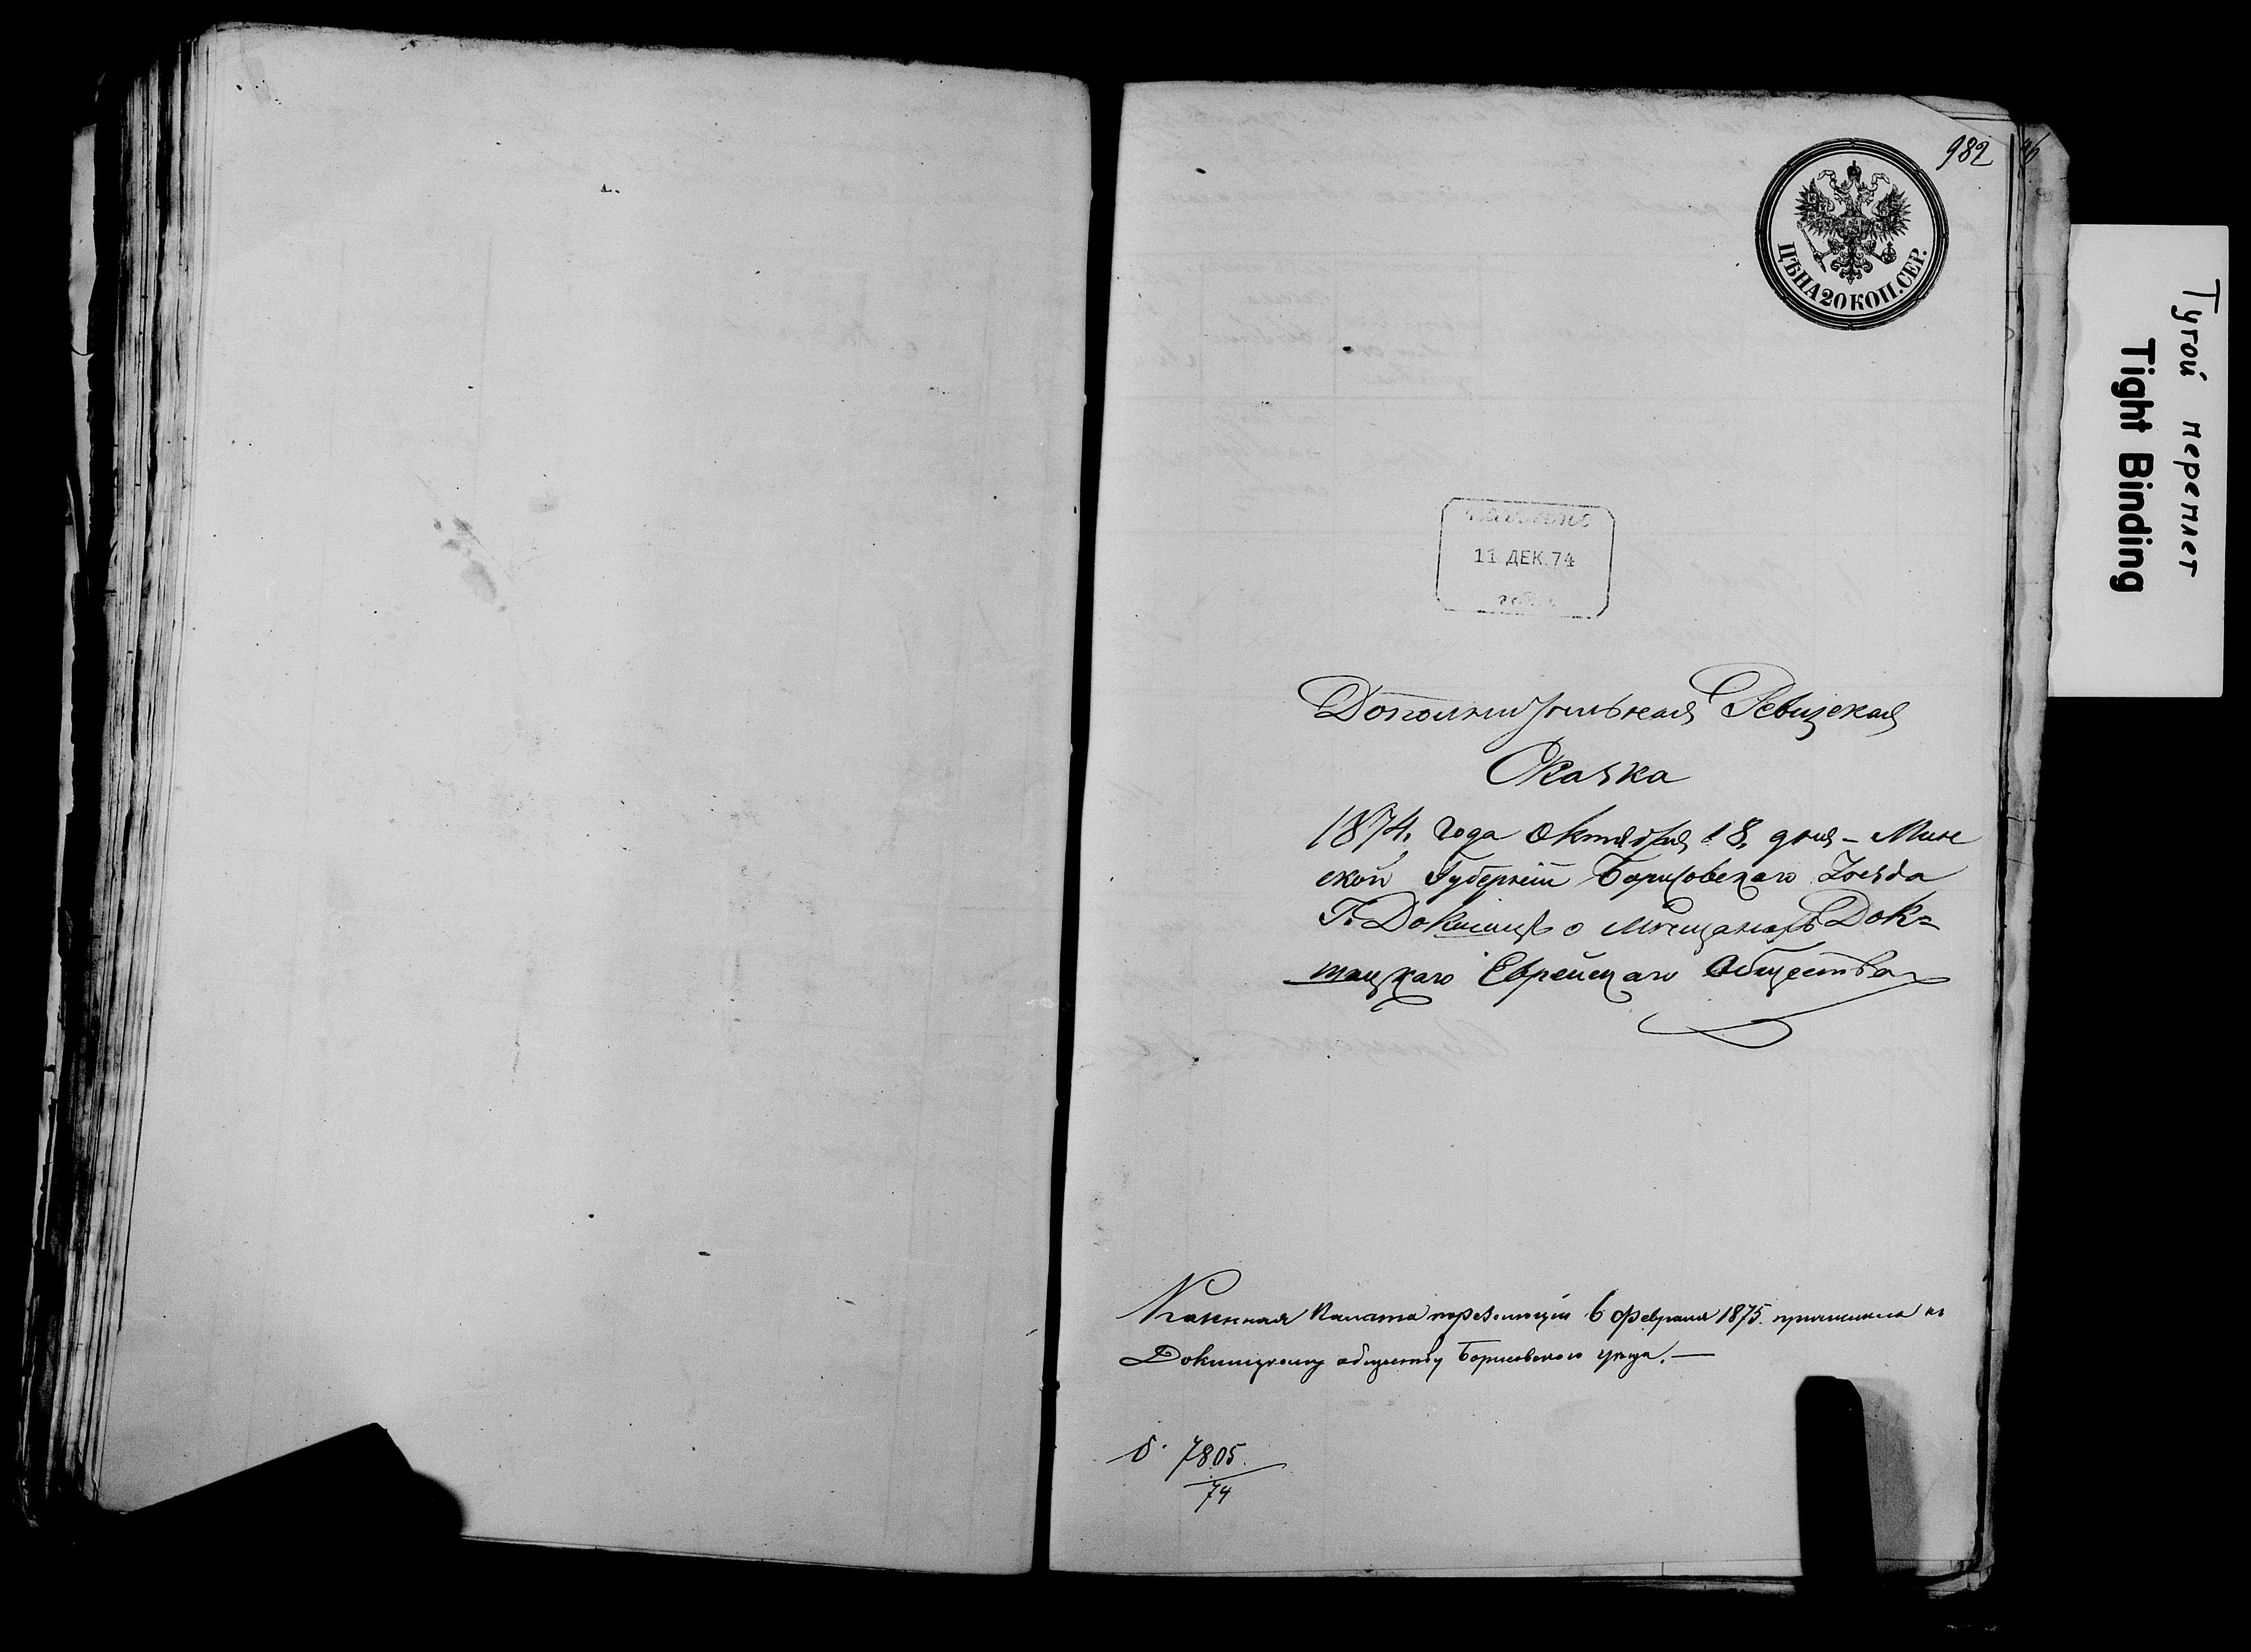 982
ЦѢНА 20 КОП. СЕР.
11 ДЕК. 74
Дополнительная Ревизская
Сказка
1874. года Октября 18. дня – Мин
ской Губерніи Борисовскаго Уезда
Г. Докшицъ о мѣщанахъ Док=
шицкаго Еврейскаго Общества
Казенная Палата 6 Февраля 1875. причислила къ
Докшицкому обществу Борисовского уезда. —
7805.
74
Тугой переплет
Tight Binding